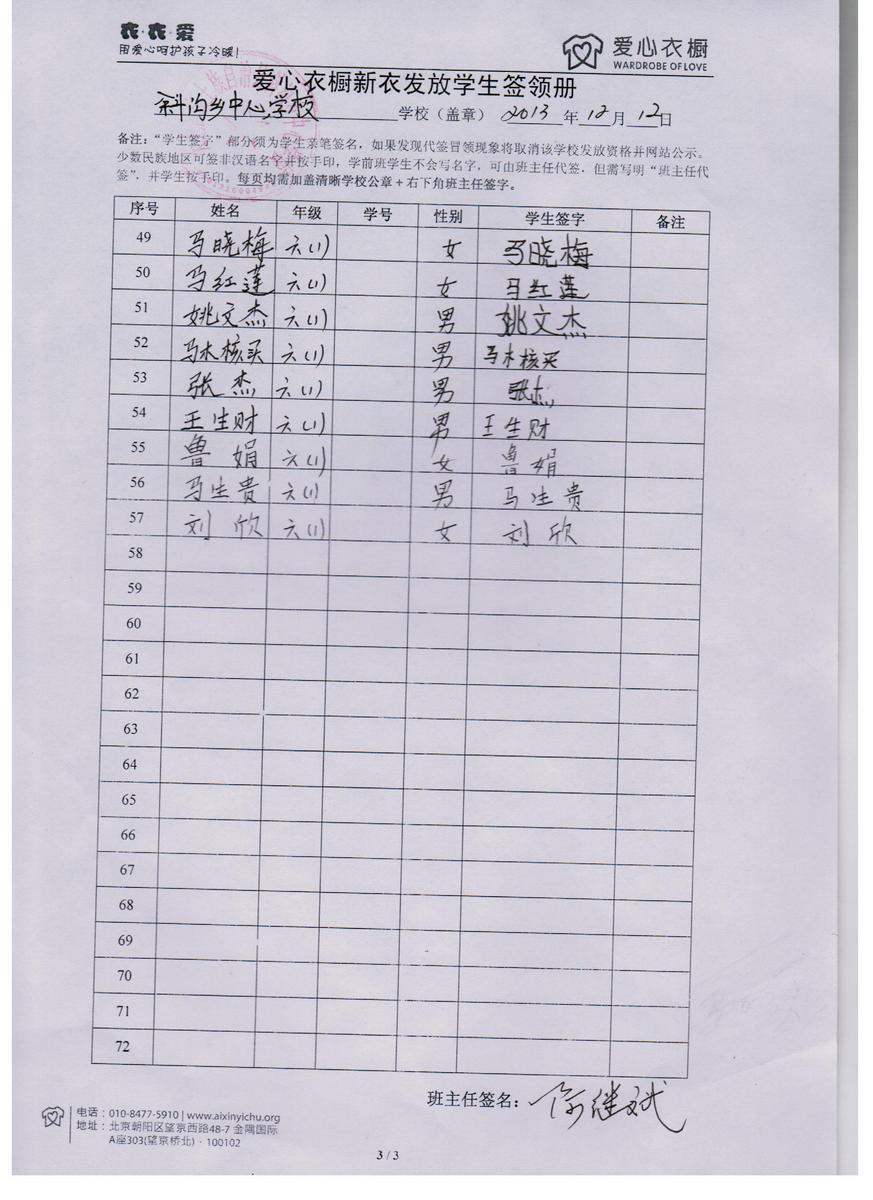 衣·衣·爱
用爱心呵护孩子冷暖!
爱心衣橱
WARDROBE OF LOVE
爱心衣橱新衣发放学生签领册
斜沟乡中心学校 学校（盖章） 2013 年 12 月 12 日
备注："学生签字"部分须为学生亲笔签名，如果发现代签冒领现象将取消该学校发放资格并网站公示。
少数民族地区可签非汉语名字并按手印，学前班学生不会写名字，可由班主任代签，但需写明"班主任代
签"，并学生按手印。每页均需加盖清晰学校公章+右下角班主任签字。
序号 姓名 年级 学号 性别 学生签字 备注
49 马晓梅 六(1) 女 马晓梅
50 马红莲 六(1) 女 马红莲
51 姚文杰 六(1) 男 姚文杰
52 马木核买 六(1) 男 马木核买
53 张杰 六(1) 男 张杰
54 王生财 六(1) 男 王生财
55 鲁娟 六(1) 女 鲁娟
56 马生贵 六(1) 男 马生贵
57 刘欣 六(1) 女 刘欣
58
59
60
61
62
63
64
65
66
67
68
69
70
71
72
班主任签名：
电话：010-8477-5910 | www.aixinyichu.org
地址：北京朝阳区望京西路48-7 金隅国际
A座303(望京桥北)·100102
3 / 3